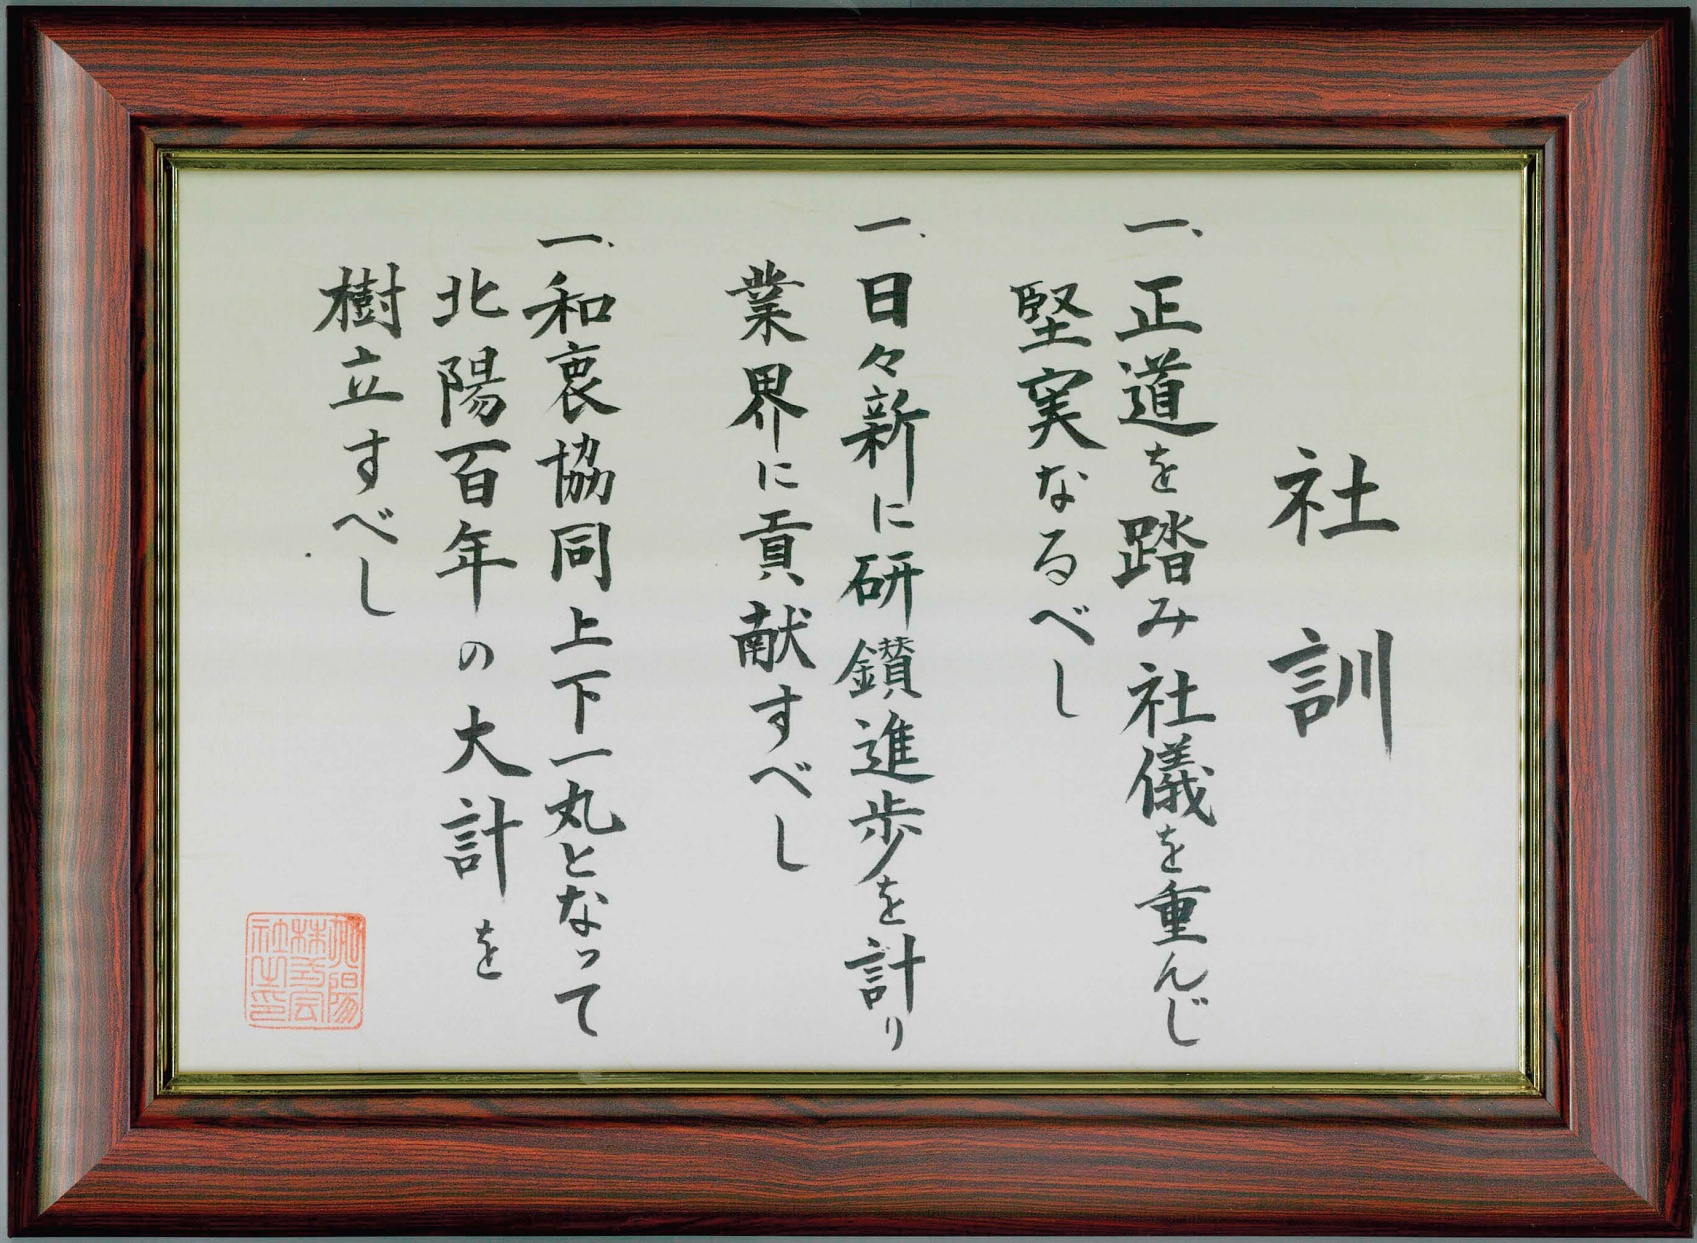 社訓
一、正道を踏み社儀を重んじ
堅実なるべし
一、日々新に研鑚進歩を計り
業界に貢献すべし
一、和衷協同上下一丸となって
北陽百年の大計を
樹立すべし
北陽
株式会
社之印